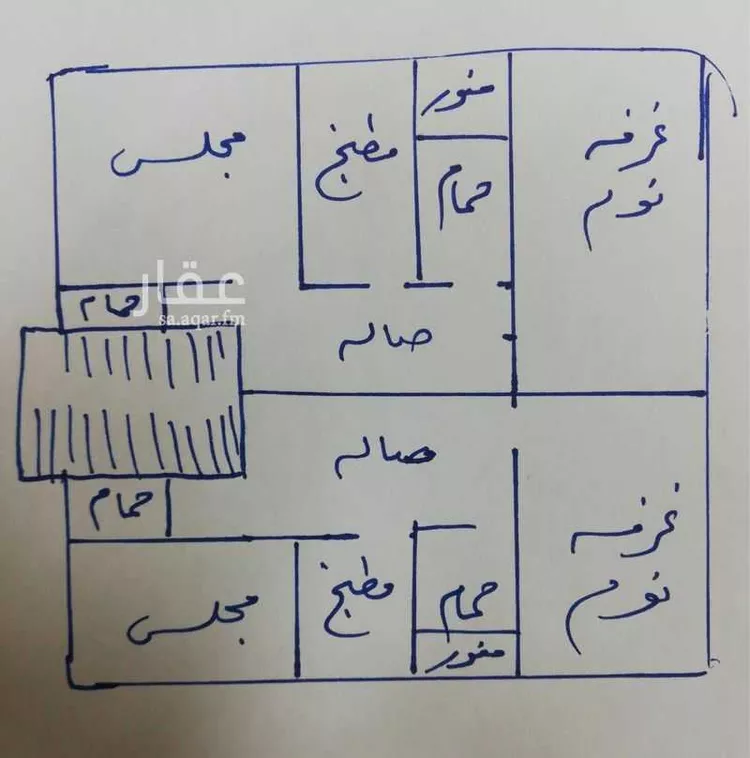 منور
غرفه
نوم
مطبخ
مجلس
حمام
عقار
sa.aqar.fm
حمام
صاله
صاله
حمام
غرفه
نوم
مطبخ
حمام
مجلس
منور